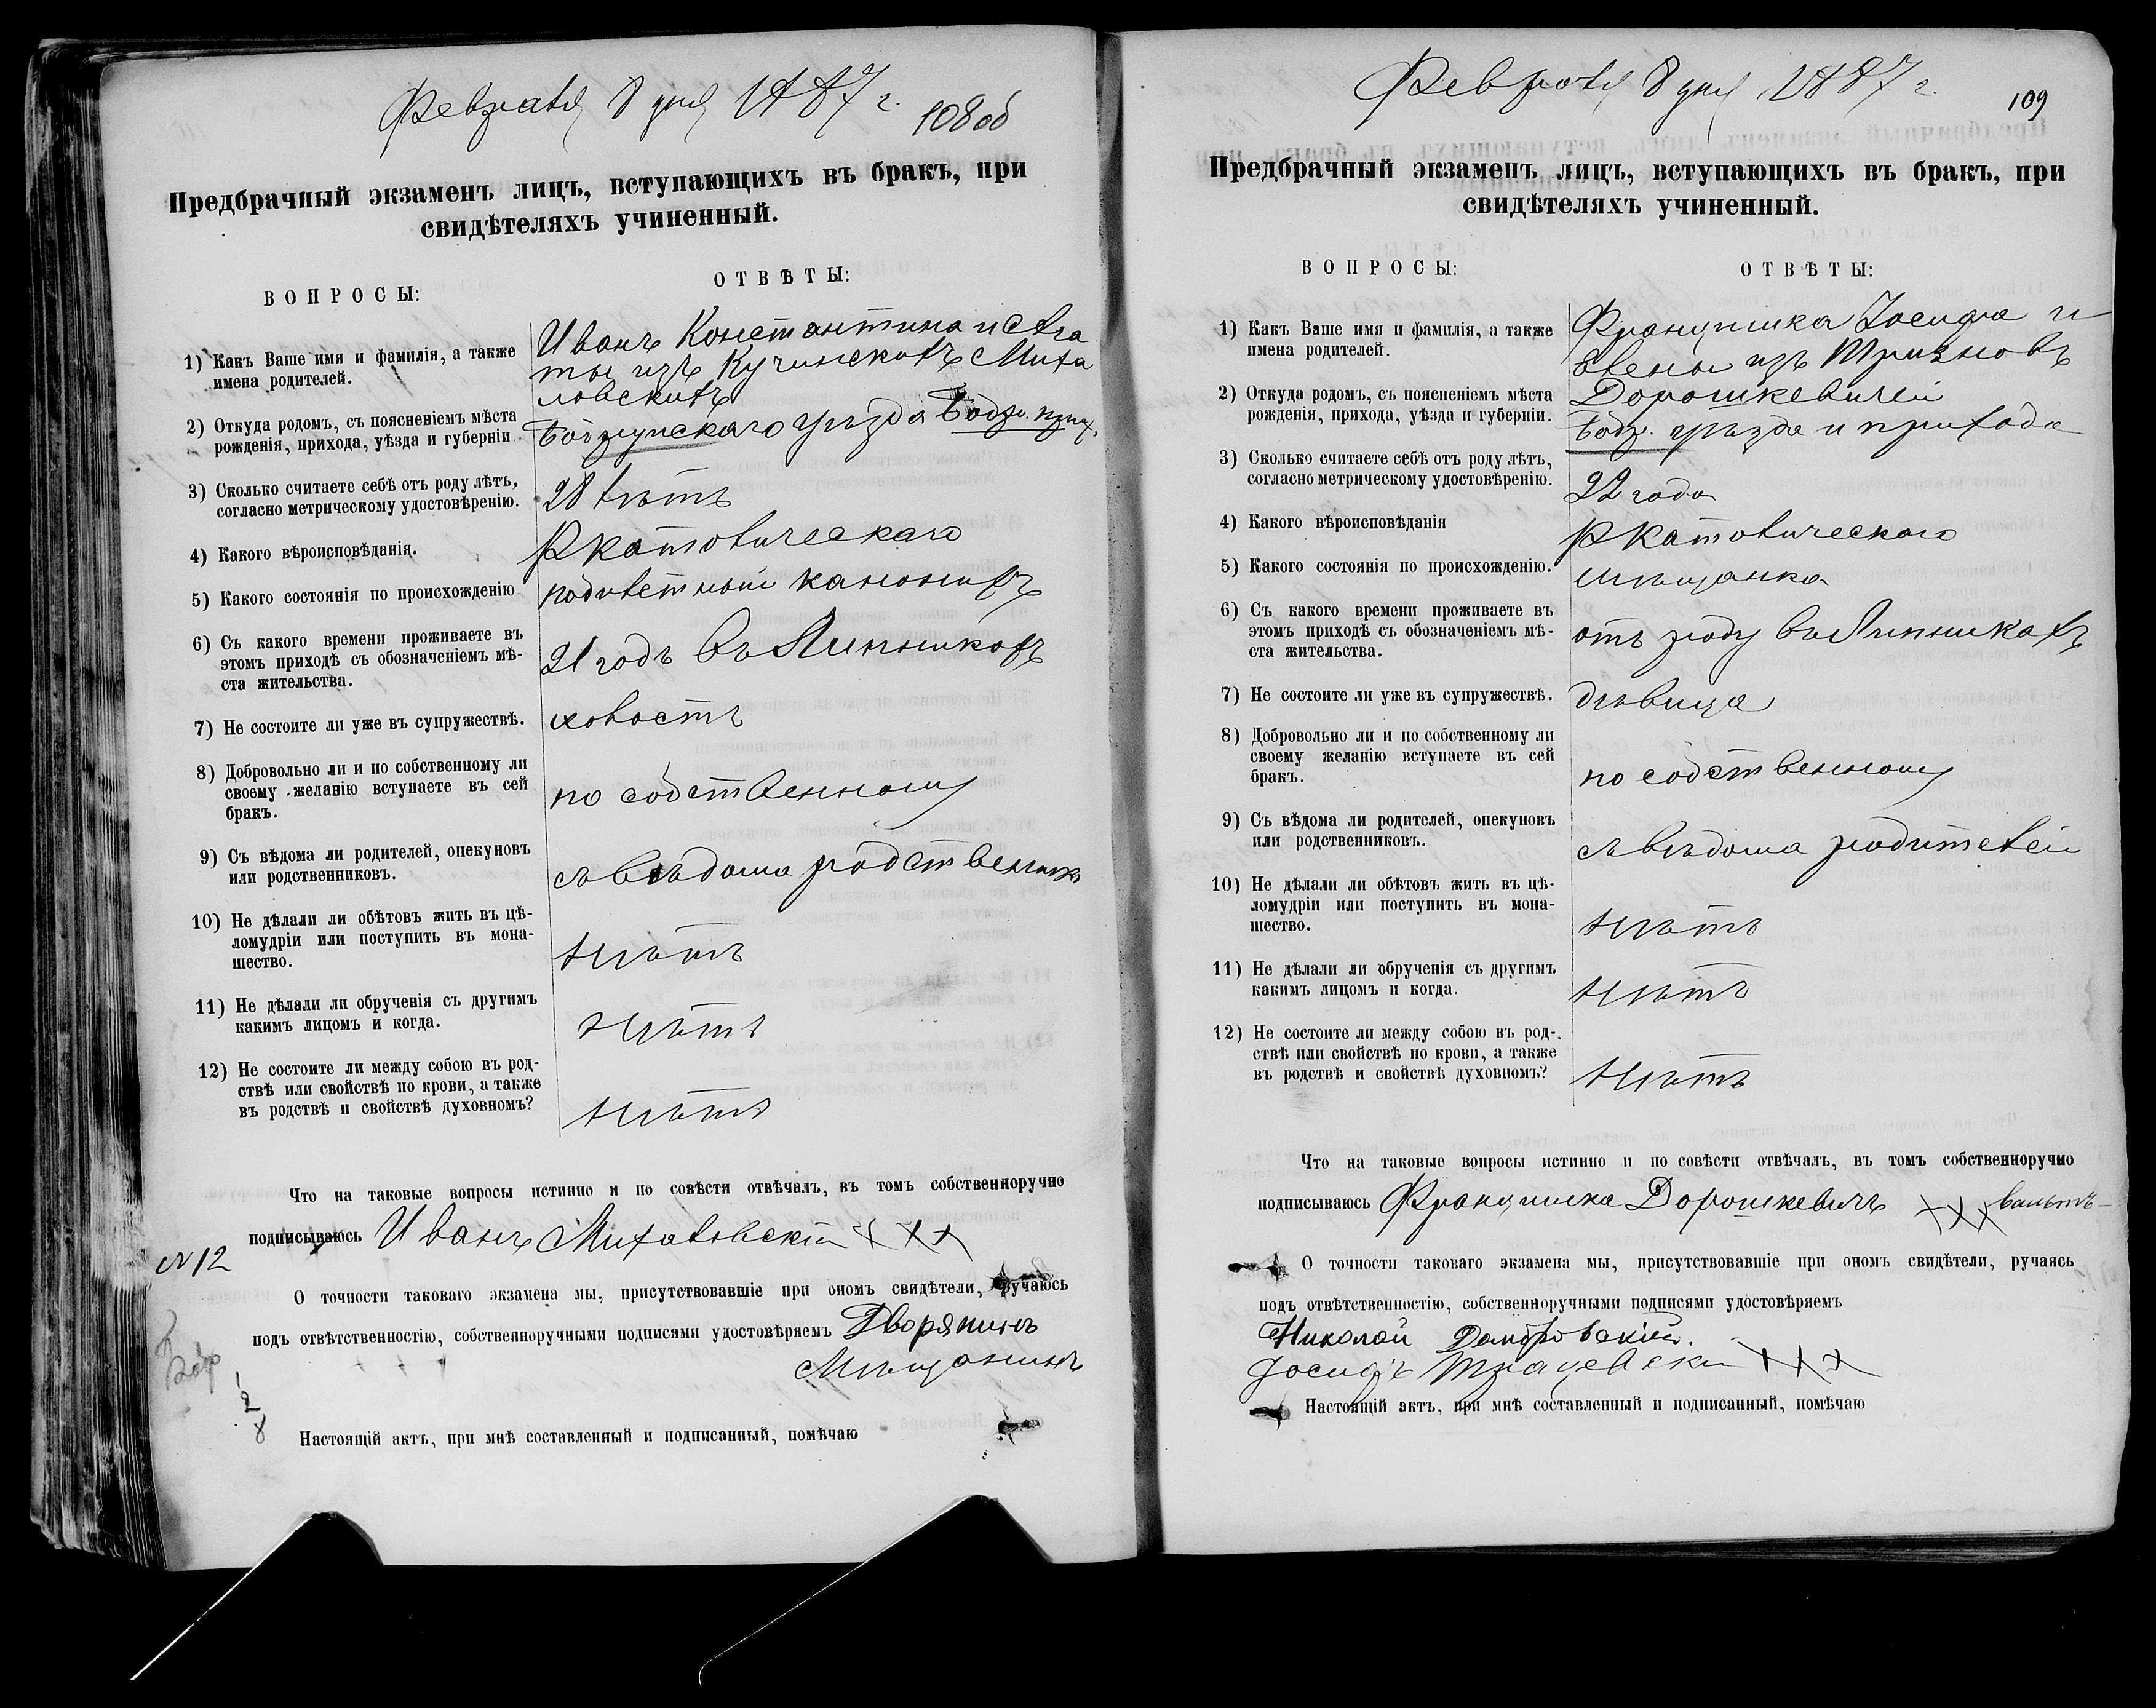 Февраля 8 дня 1887 г.
108об
Предбрачный экзаменъ лицъ, вступающихъ въ бракъ, при
свидѣтеляхъ учиненный.
ВОПРОСЫ:
ОТВѢТЫ:
1) Какъ Ваше имя и фамилія, а также
имена родителей.
Иванъ Константина и Ага
ты изъ Кучинскихъ Миха
ловскихъ
2) Откуда родомъ, съ поясненіемъ мѣста
рожденія, прихода, уѣзда и губерніи.
Бобруйскаго уѣзда Бобр. прих.
3) Сколько считаете себѣ отъ роду лѣтъ,
согласно метрическому удостовѣренію.
28 лѣтъ
4) Какого вѣроисповѣданія.
Р Католическаго
5) Какого состоянія по происхожденію
6) Съ какого времени проживаете въ
этомъ приходѣ съ обозначеніемъ мѣ-
ста жительства.
21 годъ въ Липникахъ
7) Не состоите ли уже въ супружествѣ.
холостъ
8) Добровольно ли и по собственному ли
своему желанію вступаете въ сей
бракъ.
по собственному
9) Съ вѣдома ли родителей, опекуновъ
или родственниковъ.
съ вѣдома родственник
10) Не дѣлали ли обѣтовъ жить въ цѣ-
ломудріи или поступить въ мона-
шество.
нѣтъ
11) Не дѣлали ли обрученія съ другимъ
какимъ лицомъ и когда.
нѣтъ
12) Не состоите ли между собою въ род-
ствѣ или свойствѣ по крови, а также
въ родствѣ и свойствѣ духовномъ?
нѣтъ
Что на таковые вопросы истинно и по совѣсти отвѣчалъ, въ томъ собственноручно
подписываюсь Иванъ Михаловскій ххх
N12
О точности таковаго экзамена мы, присутствовавшіе при ономъ свидѣтели, ручаюсь
подъ отвѣтственностію, собственноручными подписями удостовѣряемъ Дворянинъ
Мѣщанинъ
Настоящій актъ, при мнѣ составленный и подписанный, помѣчаю
Февраля 8 дня 1887 г.
109
Предбрачный экзаменъ лицъ, вступающихъ въ бракъ, при
свидѣтеляхъ учиненный.
ВОПРОСЫ:
ОТВѢТЫ:
1) Какъ Ваше имя и фамилія, а также
имена родителей.
Францишка Іосифа и
Елены изъ
Дорошкевичей
2) Откуда родомъ, съ поясненіемъ мѣста
рожденія, прихода, уѣзда и губерніи.
Бобр. уѣзда и прихода
3) Сколько считаете себѣ отъ роду лѣтъ,
согласно метрическому удостовѣренію.
22 года
4) Какого вѣроисповѣданія
Р Католическаго
5) Какого состоянія по происхожденію.
мѣщанка
6) Съ какого времени проживаете въ
этомъ приходѣ съ обозначеніемъ мѣ-
ста жительства.
отъ роду въ Липникахъ
7) Не состоите ли уже въ супружествѣ.
дѣвица
8) Добровольно ли и по собственному ли
своему желанію вступаете въ сей
бракъ.
по собственному
9) Съ вѣдома ли родителей, опекуновъ
или родственниковъ.
съ вѣдома родителей
10) Не дѣлали ли обѣтовъ жить въ цѣ-
ломудріи или поступить въ мона-
шество.
нѣтъ
11) Не дѣлали ли обрученія съ другимъ
какимъ лицомъ и когда.
нѣтъ
12) Не состоите ли между собою въ род-
ствѣ или свойствѣ по крови, а также
въ родствѣ и свойствѣ духовномъ?
нѣтъ
Что на таковые вопросы истинно и по совѣсти отвѣчалъ, въ томъ собственноручно
подписываюсь Францишка Дорошкевичъ ххх
О точности таковаго экзамена мы, присутствовавшіе при ономъ свидѣтели, ручаясь
подъ отвѣтственностію, собственноручными подписями удостовѣряемъ
Николай Домбровскій.
Іосифъ ххх
Настоящій актъ, при мнѣ составленный и подписанный, помѣчаю